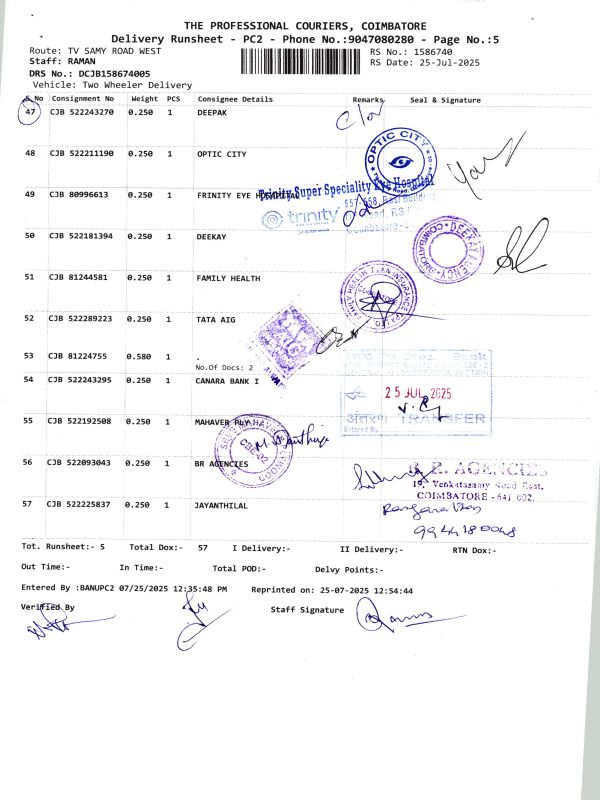 THE PROFESSIONAL COURIERS, COIMBATORE
Delivery Runsheet - PC2 - Phone No.:9047080280 - Page No.:5
Route: TV SAMY ROAD WEST
RS No.: 1586740
Staff: RAMAN
RS Date: 25-Jul-2025
DRS No.: DCJB158674005
Vehicle: Two Wheeler Delivery
S.No Consignment No Weight PCS Consignee Details Remarks Seal & Signature
47 CJB 522243270 0.250 1 DEEPAK
OPTIC CITY
48 CJB 522211190 0.250 1 OPTIC CITY
Trinity Super Speciality Eye Hospital
49 CJB 80996613 0.250 1 FRINITY EYE HOSPITAL
trinity
50 CJB 522181394 0.250 1 DEEKAY
DEEKAY AGENCY COIMBATORE
51 CJB 81244581 0.250 1 FAMILY HEALTH
FAMILY HEALTH PLAN INSURANCE
52 CJB 522289223 0.250 1 TATA AIG
53 CJB 81224755 0.580 1
No.Of Docs: 2
54 CJB 522243295 0.250 1 CANARA BANK I
25 JUL 2025
अंतरण TRANSFER
Entered By
55 CJB 522192508 0.250 1 MAHAVER PLY
56 CJB 522093043 0.250 1 BR AGENCIES
B. R. AGENCIES
19, Venketasamy Road East,
COIMBATORE - 641 002.
57 CJB 522225837 0.250 1 JAYANTHILAL
9944180048
Tot. Runsheet:- 5 Total Dox:- 57 I Delivery:- II Delivery:- RTN Dox:-
Out Time:- In Time:- Total POD:- Delvy Points:-
Entered By :BANUPC2 07/25/2025 12:35:48 PM Reprinted on: 25-07-2025 12:54:44
Verified By Staff Signature